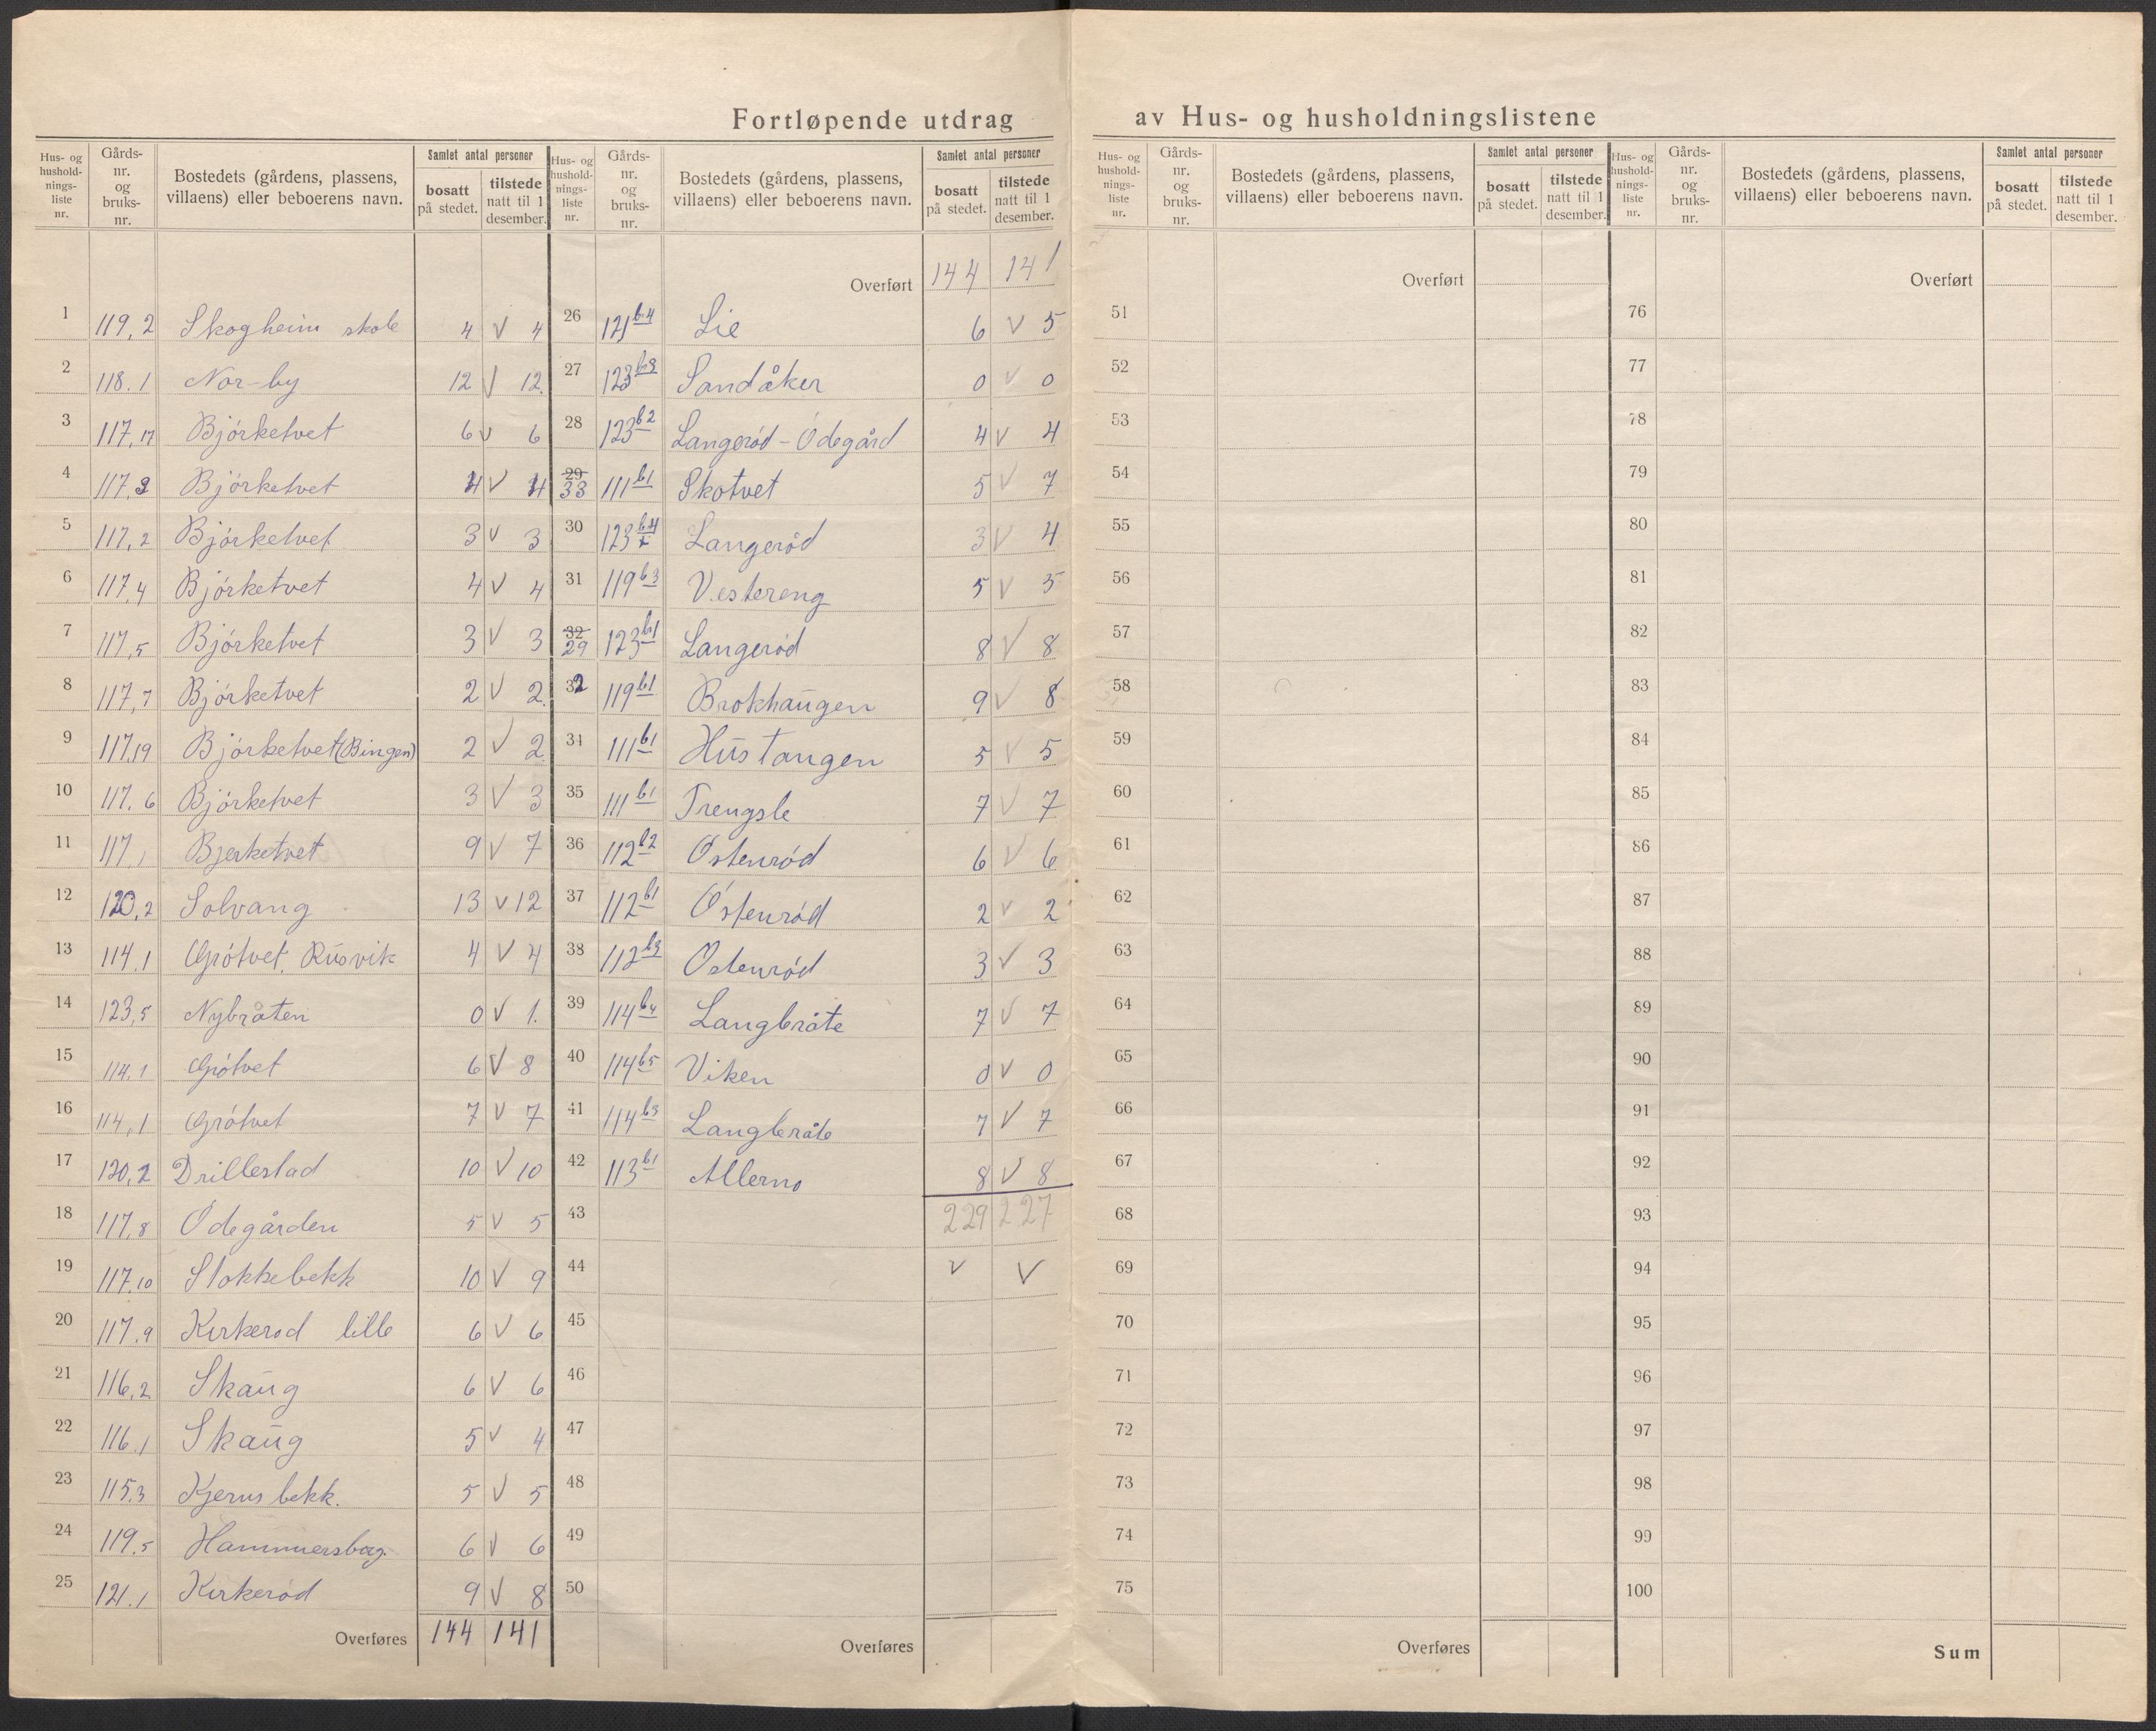 Fortløpende utdrag av Hus- og husholdningslistene
Hus- og hushold-nings-liste nr. | Gårds-nr. og bruks-nr. | Bostedets (gårdens, plassens, villaens) eller beboerens navn. | Samlet antal personer | bosatt på stedet. | tilstede natt til 1 desember.
1 119,2 Skogheim skole 4 V 4
2 118.1 Nor-by 12 V 12.
3 117,17 Bjørketvet 6 V 6
4 117,3 Bjørketvet 4 V 4
5 117,2 Bjørketvet 3 V 3
6 117,4 Bjørketvet 4 V 4
7 117,5 Bjørketvet 3 V 3
8 117,7 Bjørketvet 2 V 2.
9 117,19 Bjørketvet (Bingen) 2 V 2.
10 117.6 Bjørketvet 3 V 3
11 117,1 Bjerketvet 9 V 7
12 120,2 Solvang 13 V 12
13 114.1 Grøtvet, Rusvik 4 V 4
14 123,5 Nybråten 0 V 1.
15 114.1 Grøtvet 6 V 8
16 114,1 Grøtvet 7 V 7
17 120,2 Drillestad 10 V 10
18 117,8 Ødegården 5 V 5
19 117.10 Stokkebekk 10 V 9
20 117.9 Kirkerød lille 6 V 6
21 116,2 Skaug 6 V 6
22 116.1 Skaug 5 V 4
23 115.3 Kjernsbekk. 5 V 5
24 119.5 Hammersborg. 6 V 6
25 121.1 Kirkerød 9 V 8
Overføres 144 141
Hus- og hushold-nings-liste nr. | Gårds-nr. og bruks-nr. | Bostedets (gårdens, plassens, villaens) eller beboerens navn. | Samlet antal personer | bosatt på stedet. | tilstede natt til 1 desember.
Overført 144 141
26 121 b.4 Lie 6 V 5
27 123 b3 Sandåker 0 V 0
28 123 b2 Langerød-Ødegård 4 V 4
29 33 111 b1 Skotvet 5 V 7
30 123 b.4 Langerød 3 V 4
31 119 b3 Vestereng 5 V 5
32 29 123 b1 Langerød 8 V 8
32 119 b1 Brokhaugen 9 V 8
34 111 b1 Hustangen 5 V 5
35 111 b1 Trengsle 7 V 7
36 112 b2 Østenrød 6 V 6
37 112 b1 Østenrød 2 V 2
38 112 b3 Østenrød 3 V 3
39 114 b4 Langbråte 7 V 7
40 114 b5 Viken 0 V 0
41 114 b3 Langbråte 7 V 7
42 113 b1 Allerno 8 V 8
43 229 227
44 V V
45
46
47
48
49
50
Overføres
Hus- og hushold-nings-liste nr. | Gårds-nr. og bruks-nr. | Bostedets (gårdens, plassens, villaens) eller beboerens navn. | Samlet antal personer | bosatt på stedet. | tilstede natt til 1 desember.
Overført
51
52
53
54
55
56
57
58
59
60
61
62
63
64
65
66
67
68
69
70
71
72
73
74
75
Overføres
Hus- og hushold-nings-liste nr. | Gårds-nr. og bruks-nr. | Bostedets (gårdens, plassens, villaens) eller beboerens navn. | Samlet antal personer | bosatt på stedet. | tilstede natt til 1 desember.
Overført
76
77
78
79
80
81
82
83
84
85
86
87
88
89
90
91
92
93
94
95
96
97
98
99
100
Sum